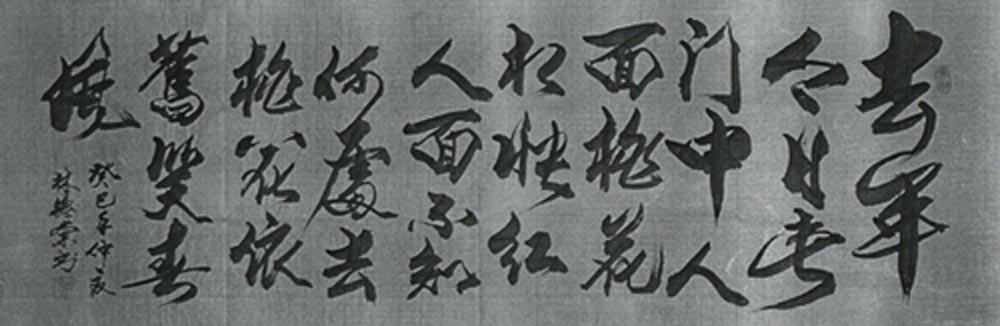 去年
今日此
门中人
面桃花
相映红
人面不知
何處去
桃花依
舊笑春
風
癸巳年仲夏
林